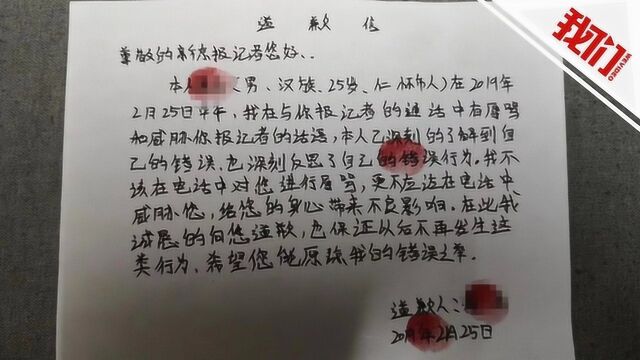 道歉信
我们
WEVIDEO
尊敬的新京报记者您好、
本人 （男、汉族、25岁、仁怀市人）在2019年
2月25日中午，我在与你报记者的通话中有辱骂
和威胁你报记者的话语，本人已深刻的了解到自
己的错误、也深刻反思了自己的错误行为，我不
该在电话中对您进行辱骂，更不应该在电话中
威胁您，给您的身心带来不良影响。在此我
诚恳的向您道歉，也保证以后不再发生这
类行为、希望您能原谅我的错误之举。
道歉人：
2019年2月25日